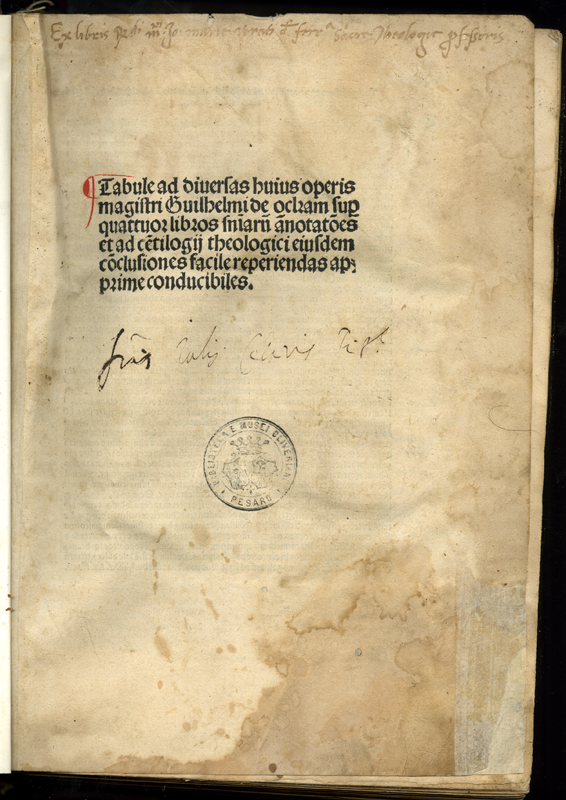 Ex libris
Theologie
¶Tabule ad diuersas huius operis
magistri Guilhelmi de ockam sup
quattuor libros sn̄iarū ānotatōes
et ad cētilogij theologici eiusdem
cōclusiones facile reperiendas ap⸗
prime conducibiles.
BIBLIOTECA E MUSEI OLIVERIANI
PESARO